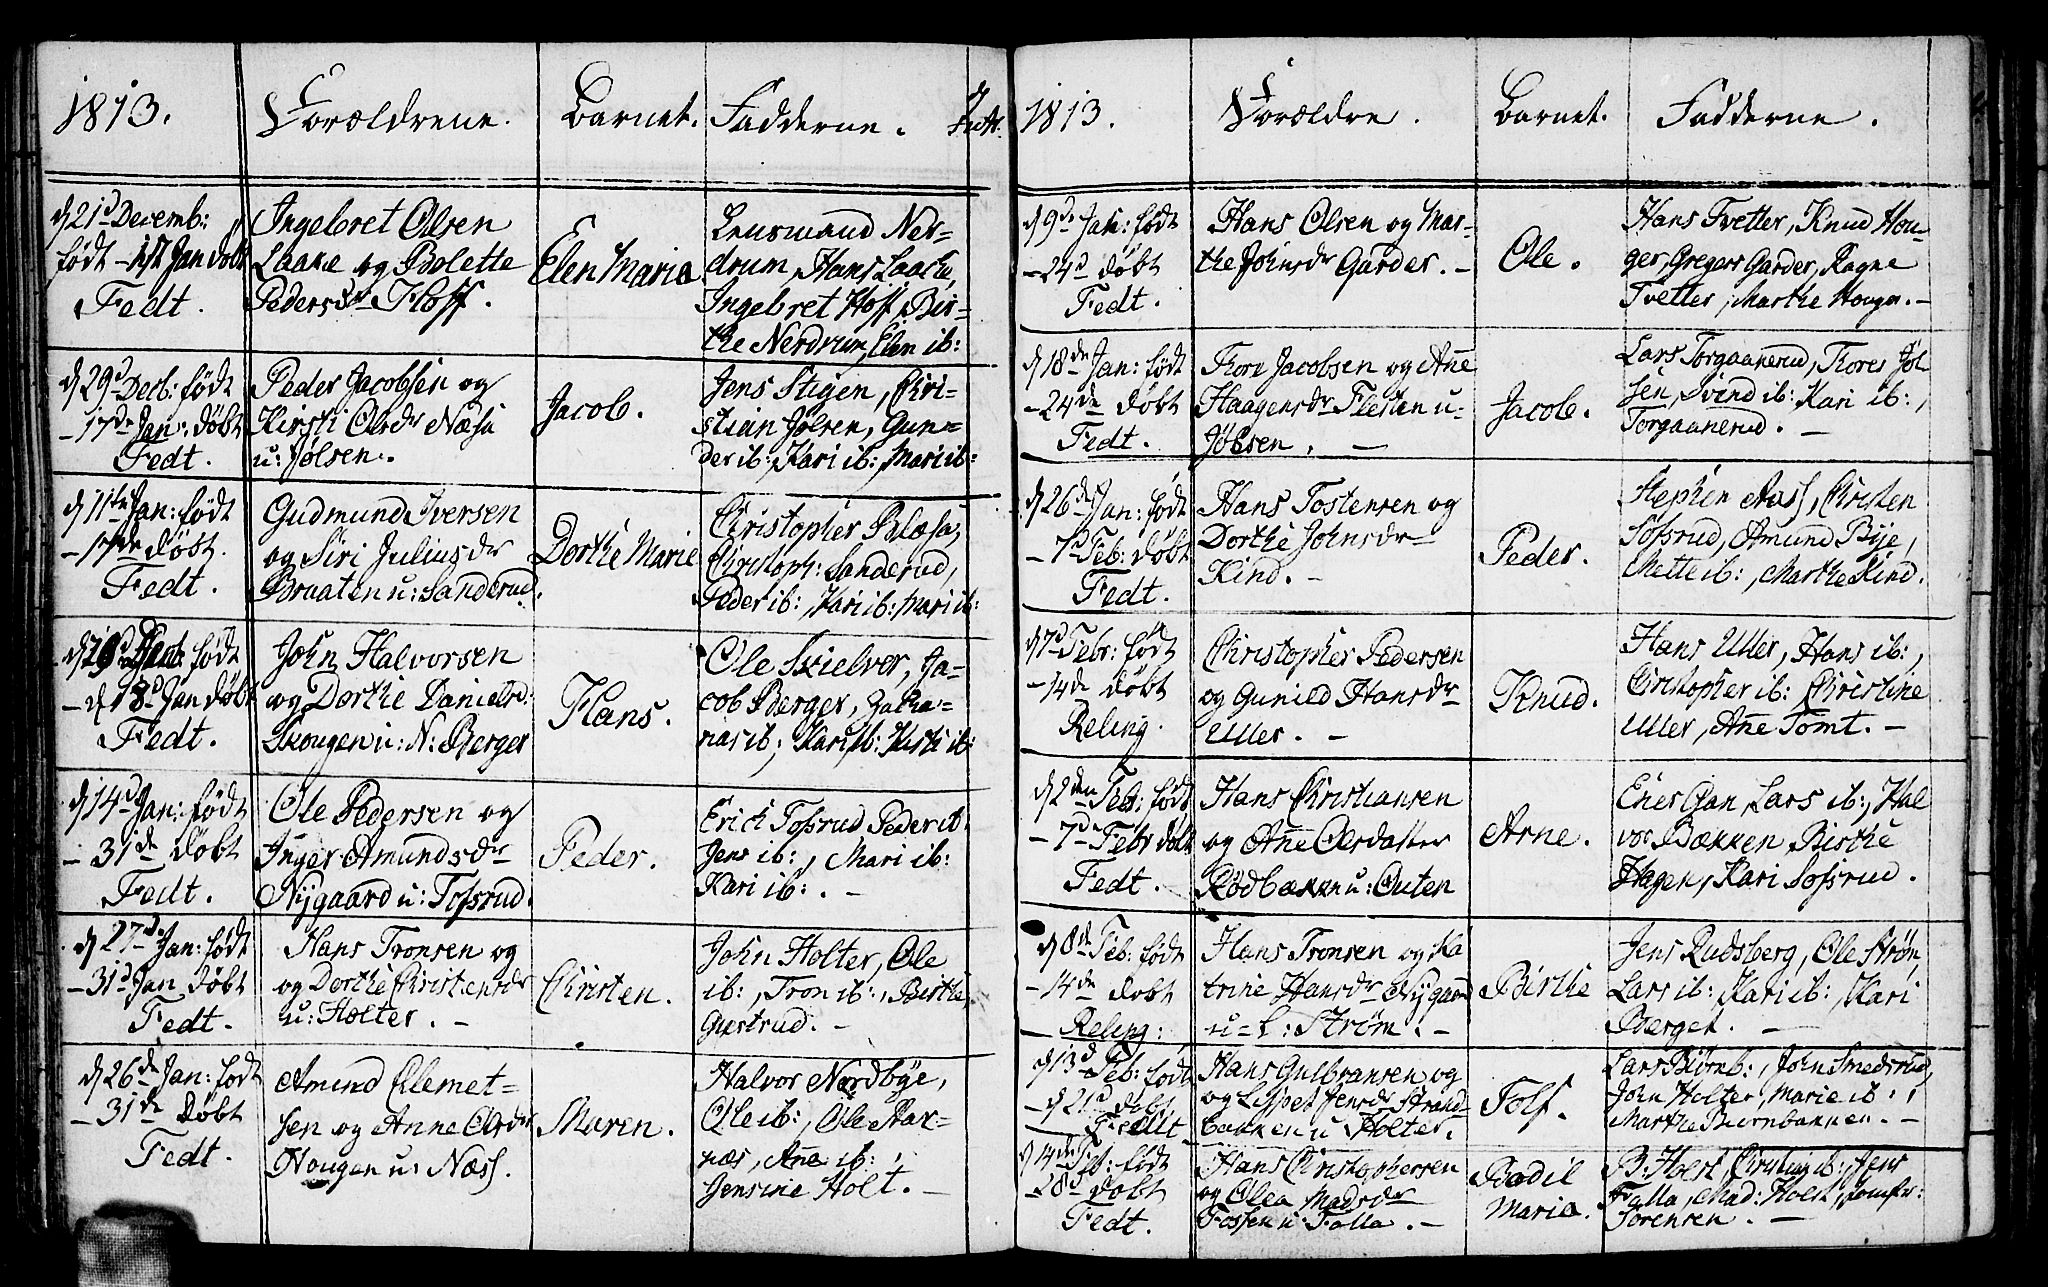 1813. Forældrene. Barnet. Fadderne.
d 21d Decemb:
født - 1st Jan døbt
Fedt.
Ingebret Olsen
Laake og Bolette
Pedersdr Hoff.
Elen Maria
Lensmand Ner=
drum, Hans Laacke,
Ingebret Hoff, Bir=
the Nerdrum, Elen ib:
d 29d Decb: født
- 17de Jan: døbt
Fedt.
Peder Jacobsen og
Kirsti Olsdr Næsa
u: Jølsen.
Jacob.
Jens Stigen, Chri-
stian Jølsen, Gun=
der ib:, Kari ib:, Mari ib:
d 11te Jan: født
- 17de døbt.
Fedt.
Gudmund Iversen
og Siri Juliusdr
Braaten u: Sanderud.
Dorthe Marie
Christopher Blæsa,
Christoph: Sanderud,
Peder ib:, Kari ib: Mari ib:
født
- d 18d Jan døbt
Fedt.
John Halvorsen
og Dorthe Danielsd:
Skougen u: N: Berger
Hans.
Ole Skielver, Ja-
cob Berger, Zacha-
rias ib; Kari ib: Kirsti ib:
d 14d Jan: født
- 31de døbt
Fedt.
Ole Pedersen og
Inger Amundsdr
Nygaard u: Tofsrud.
Peder.
Erich Tofsrud Peder ib.
Jens ib:, Mari ib:
Kari ib:. -
d 27de Jan: født
- 31d Jan døbt
Fedt.
Hans Tronsen og
og Dorthe Christensdr
u: Holter. -
Christen.
John Holter, Ole
ib:, Tron ib:, Birthe,
Gustrud. -
d 26de Jan: født
- 31de døbt
Fedt.
Amund Clemet=
sen og Anne Olsdr
Hougen u: Næss.
Maren.
Halvor Nordbye,
Ole ib:, Ole Aar=
næs, Ane ib:,
Jensine Holt. -
1813. Forældre. Barnet. Fadderne.
d 9de Jan: født
- 24d døbt
Fedt.
Hans Olsen og Mar-
the Johnsdr Garder. -
Ole.
Hans Tvetter, Knud Hou-
ger, Gregers Garder, Ragne
Tvetter, Marthe Houger. -
d 18de Jan: født
- 24de døbt
Fedt.
Thore Jacobsen og Ane
Haagensdr Flesten u-
Jølsen. -
Jacob.
Lars Torgaanerud, Thores Jøl
sen, Svend ib: Kari ib:,
Torgaanerud. -
d 26de Jan: født
- 7d Feb: døbt
Fedt.
Hans Tostensen og
Dorthe Johnsdr=
Kind. -
Peder.
Stephen Aass, Christen
Sofsrud, Amund Bye,
Mette ib:, Marthe Kind.
d 7d Febr: født
- 14de døbt
Reling.
Christopher Pedersen
og Gunild Hansdr
Uller. -
Knud.
Hans Uller, Hans ib:,
Christopher ib: Christine
Uller, Ane Tomt. -
d 2den Feb: født
- 7d Febr døbt
Fedt.
Hans Christiansen
og Ane Olsdatter
Rødbækk u: Outen
Arne.
Ener Gan, Lars ib:, Hal
vor Bækken, Birthe
Hagen, Kari Sofsrud.
d 8de Feb: født
- 14de døbt
- Reling:
Hans Tronsen og Ka
trine Hansdr Nygaard
u= L: Strøm. -
Birthe
Jens Rudsberg, Ole Strøm,
Lars ib: Kari ib:, Kari
Berget. -
d 13d Feb: født
- d 21d døbt
Fedt.
Hans Gulbransen og
og Lispet Jensdr Strand-
bakken u Holter.
Tolf.
Lars Biørnb:, John Smedsrud,
John Holter, Marie ib:,
Marthe Biørnbakken. -
d 14de Feb: født
- 28d døbt
Fedt.
Hans Christophersen
og Olea Madsdr
Fossen u: Falla. -
Bodil
Maria.
B: Holst ib:, Jens
Falla, Mad: Holst, Jomfr:
Sørensen. -